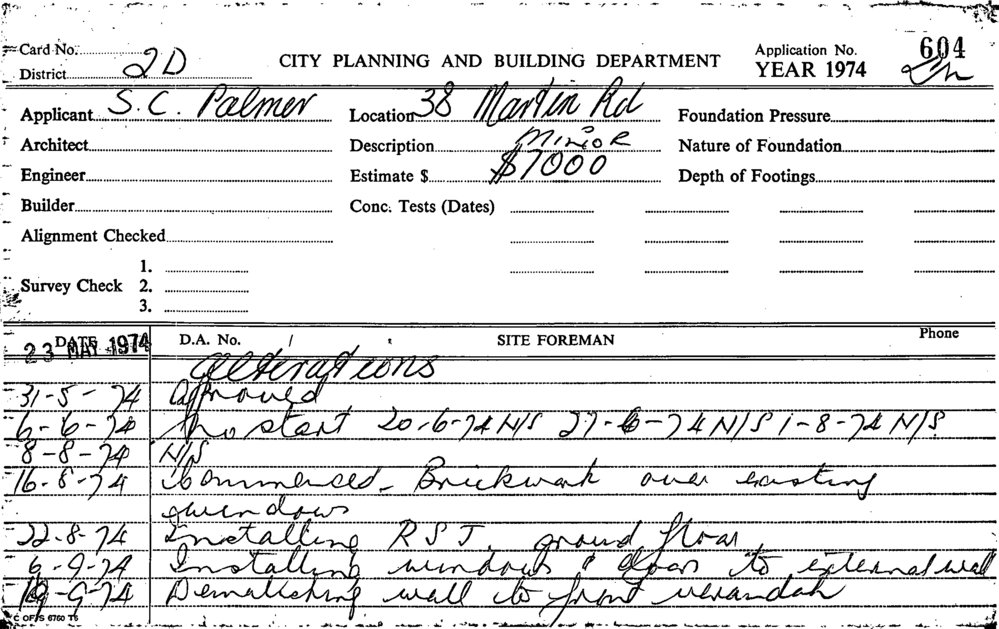 Card No. 604
District 2D CITY PLANNING AND BUILDING DEPARTMENT Application No. YEAR 1974
Applicant S.C. Palmer Location 38 Martin Rd Foundation Pressure
Architect Description MINOR Nature of Foundation
Engineer Estimate $ $7000 Depth of Footings
Builder Conc. Tests (Dates)
Alignment Checked
1.
Survey Check 2.
3.
DATE D.A. No. / SITE FOREMAN Phone
23 MAY 1974 Alterations
31-5-74 Approved
6-6-74 No start 20-6-74 N/S 27-6-74 N/S 1-8-74 N/S
8-8-74 N/S
16-8-74 Commenced - Brickwork over existing
windows
22-8-74 Installing RSJ. ground floor
6-9-74 Installing windows & doors to external wall
-9-74 Demolishing wall to front verandah
C OF S 6760 T5